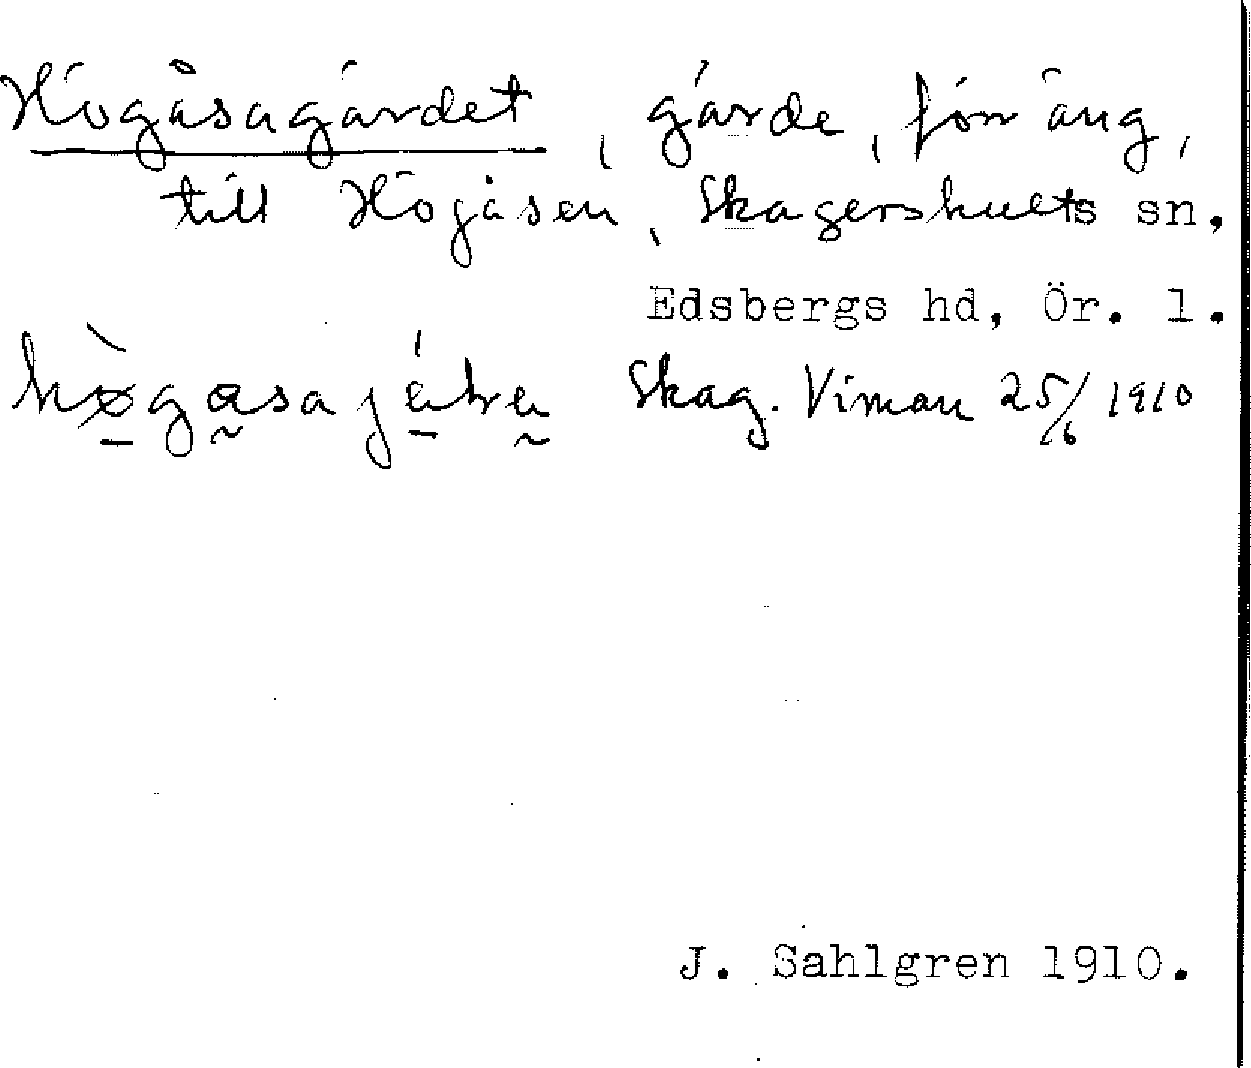 Högåsagärdet, gärde, förr äng,
till Högåsen, Skagershults sn,
Edsbergs hd, Ör. l.
Skag. Viman 25/6 1910
J. Sahlgren 1910.